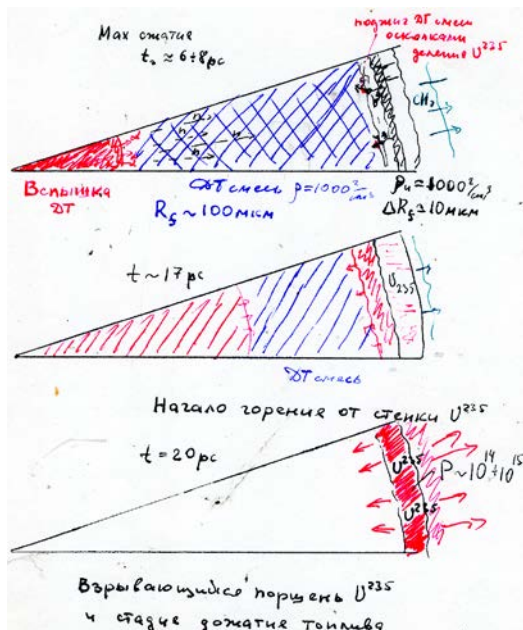 Max сжатие
t₀ ≈ 6÷8 ps
поджиг DT смеси
осколками
деление U²³⁵
n
CH₂
Вспышка
DT
DT смесь ρ=1000 г/см³
R_f ~ 100 мкм
ΔR_f ≅ 10 мкм
t ~ 17 ps
U₂₃₅
DT смесь
Начало горение от стенки U²³⁵
t = 20 ps
U²³⁵
U²³⁵
P~10¹⁴÷10¹⁵
Взрывающийся поршень U²³⁵
и стадие дожатие топлива